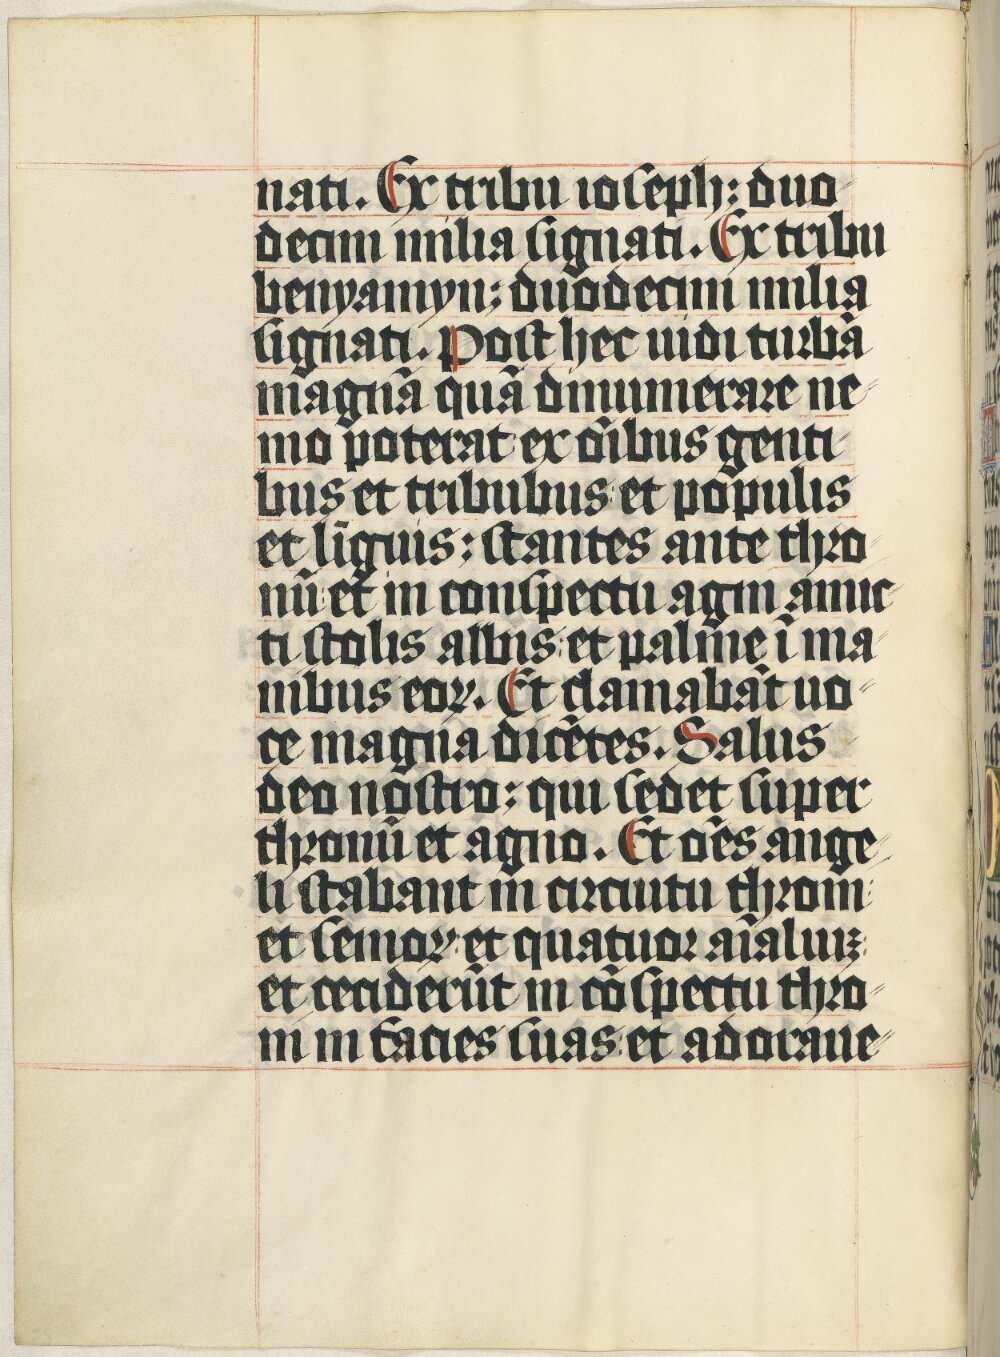 nati. Ex tribu ioseph: duo
decim milia signati. Ex tribu
benyamyn: duodecim milia
signati. Post hec uidi turbā
magnā quā dinumerare ne
mo poterat ex oi̅bus genti
bus et tribubus et populis
et li̅guis: stantes ante thro
nū et in conspectu agni amic
ti stolis albis et palme ī ma
nibus eoꝝ. Et clamabāt uo
ce magna dicētes. Salus
deo nostro: qui sedet super
thronū et agno. Et oēs ange
li stabant in circuitu throni
et senioꝝ et quatuor ai̅aliuꝫ
et ceciderūt in cōspectu thro
ni in facies suas et adoraue